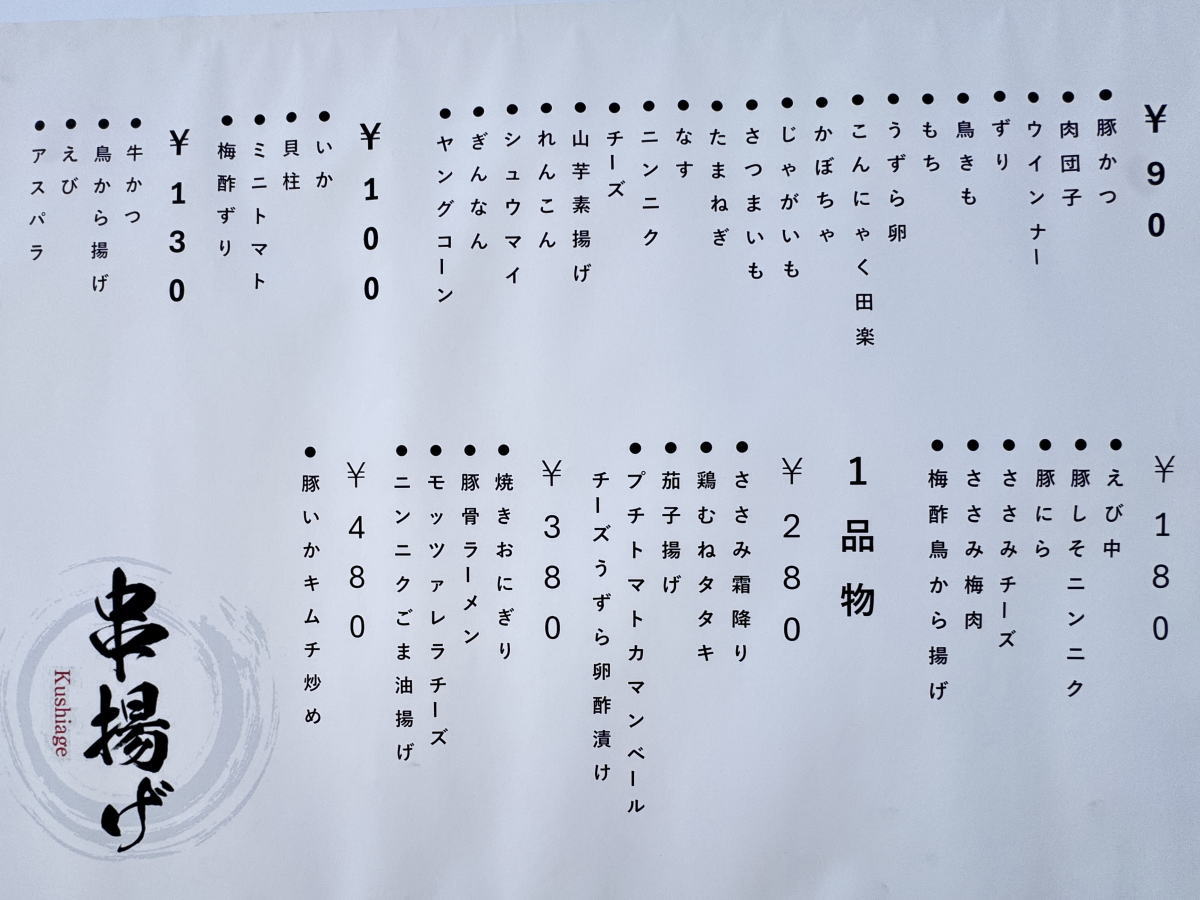 ￥90
●豚かつ
●肉団子
●ウインナー
●ずり
●鳥きも
●もち
●うずら卵
●こんにゃく田楽
●かぼちゃ
●じゃがいも
●さつまいも
●たまねぎ
●なす
●ニンニク
●チーズ
●山芋素揚げ
●れんこん
●シュウマイ
●ぎんなん
●ヤングコーン
￥100
●いか
●貝柱
●ミニトマト
●梅酢ずり
￥130
●牛かつ
●鳥から揚げ
●えび
●アスパラ
￥180
●えび中
●豚しそニンニク
●豚にら
●ささみチーズ
●ささみ梅肉
●梅酢鳥から揚げ
1品物
￥280
●ささみ霜降り
●鶏むねタタキ
●茄子揚げ
●プチトマトカマンベール
チーズうずら卵酢漬け
￥380
●焼きおにぎり
●豚骨ラーメン
●モッツァレラチーズ
●ニンニクごま油揚げ
￥480
●豚いかキムチ炒め
串揚げ
Kushiage